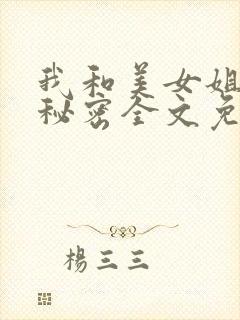 我和美女姐
秘密全文免
楊三三